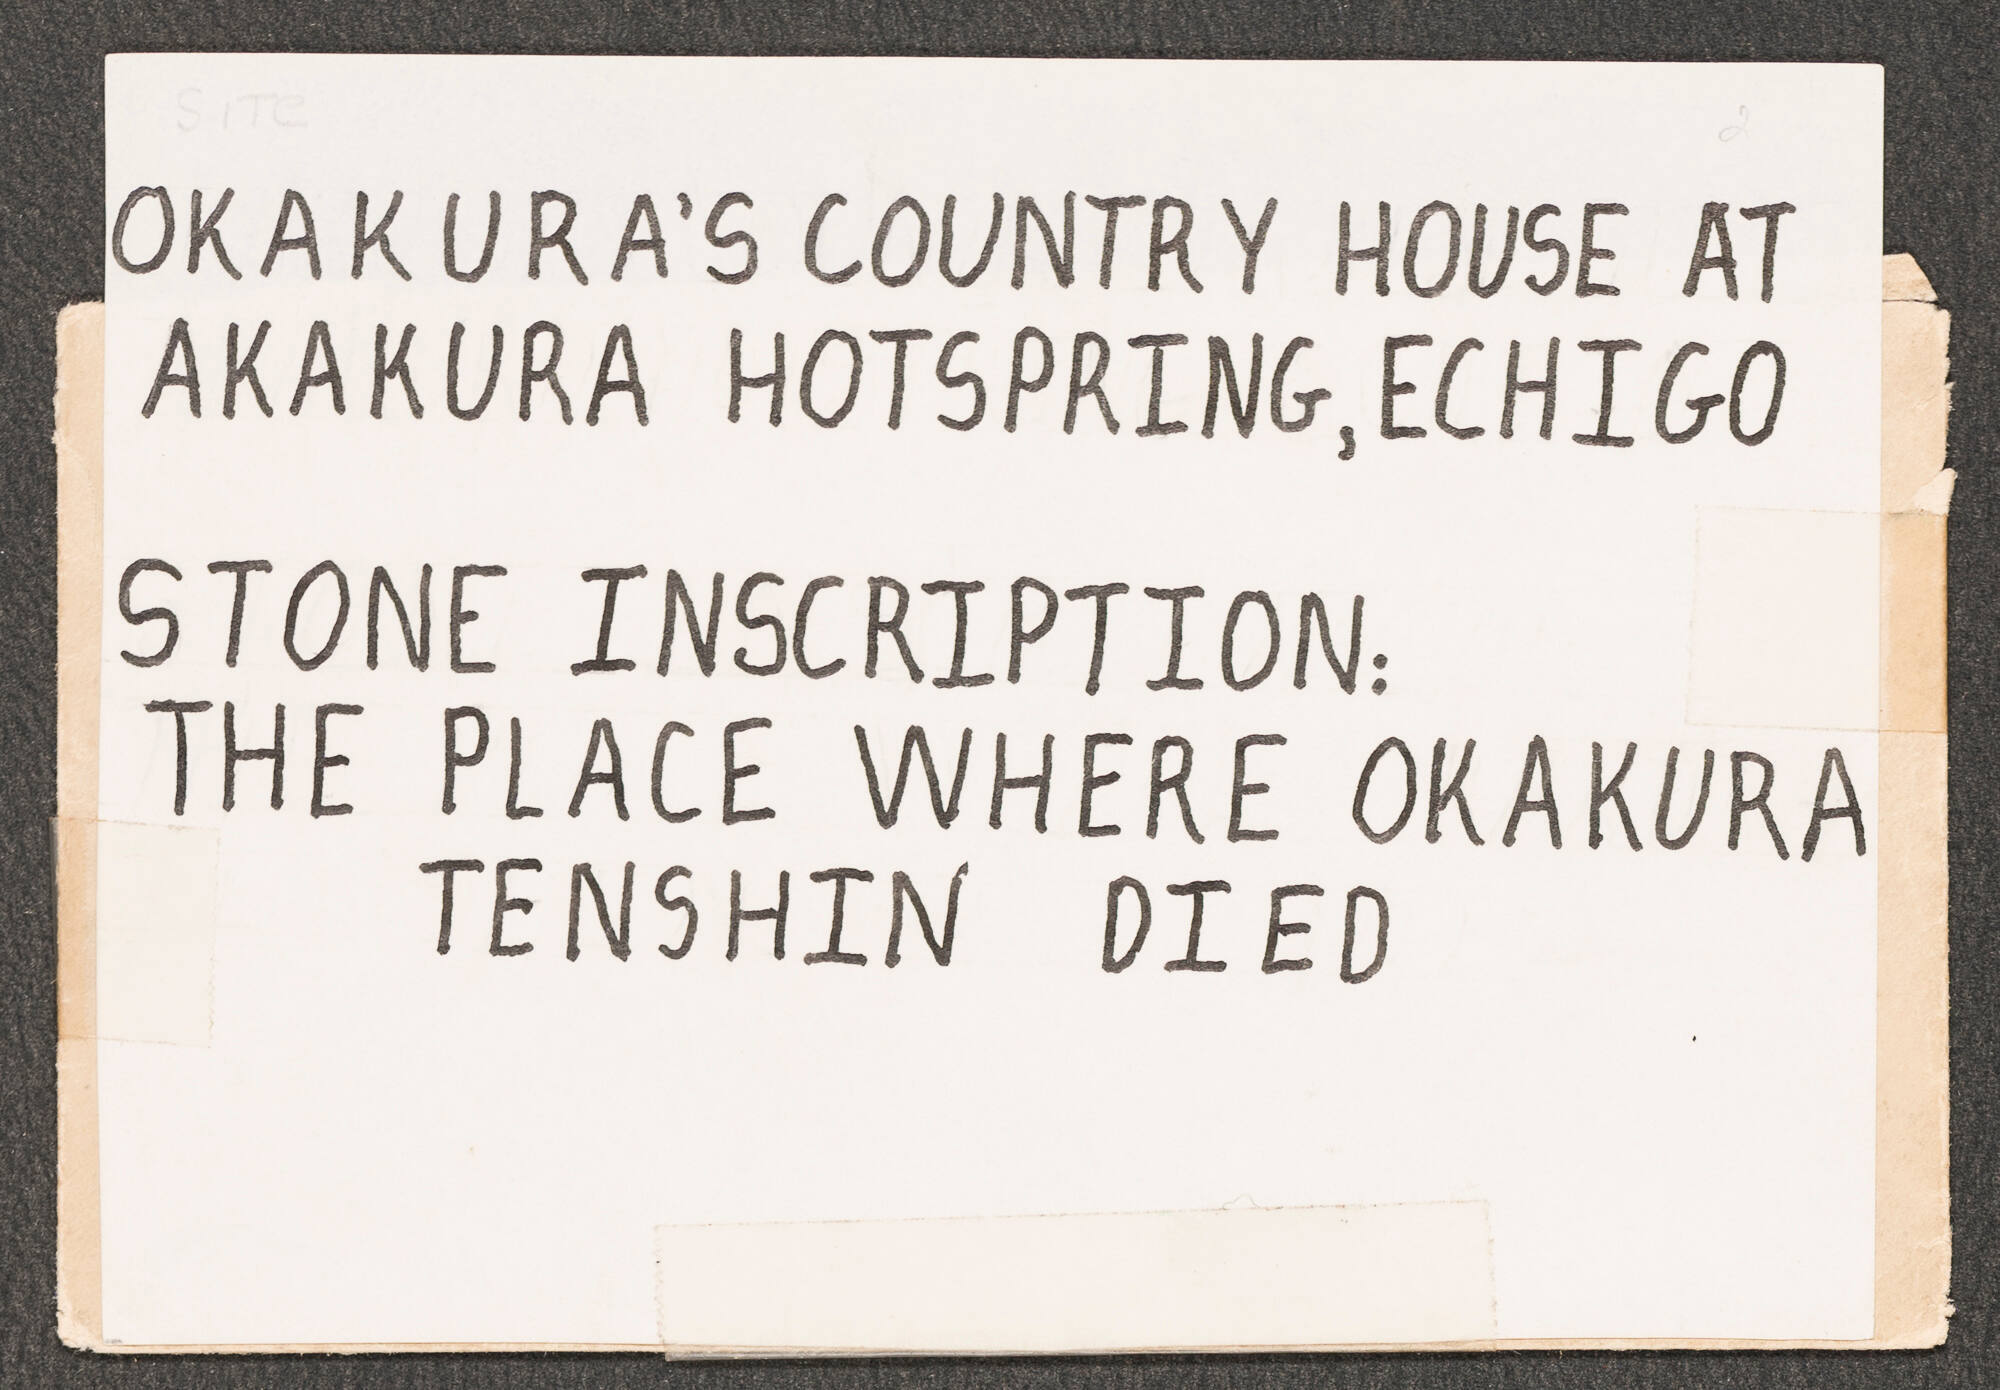 SITE
2
OKAKURA'S COUNTRY HOUSE AT
AKAKURA HOTSPRING, ECHIGO
STONE INSCRIPTION:
THE PLACE WHERE OKAKURA
TENSHIN DIED